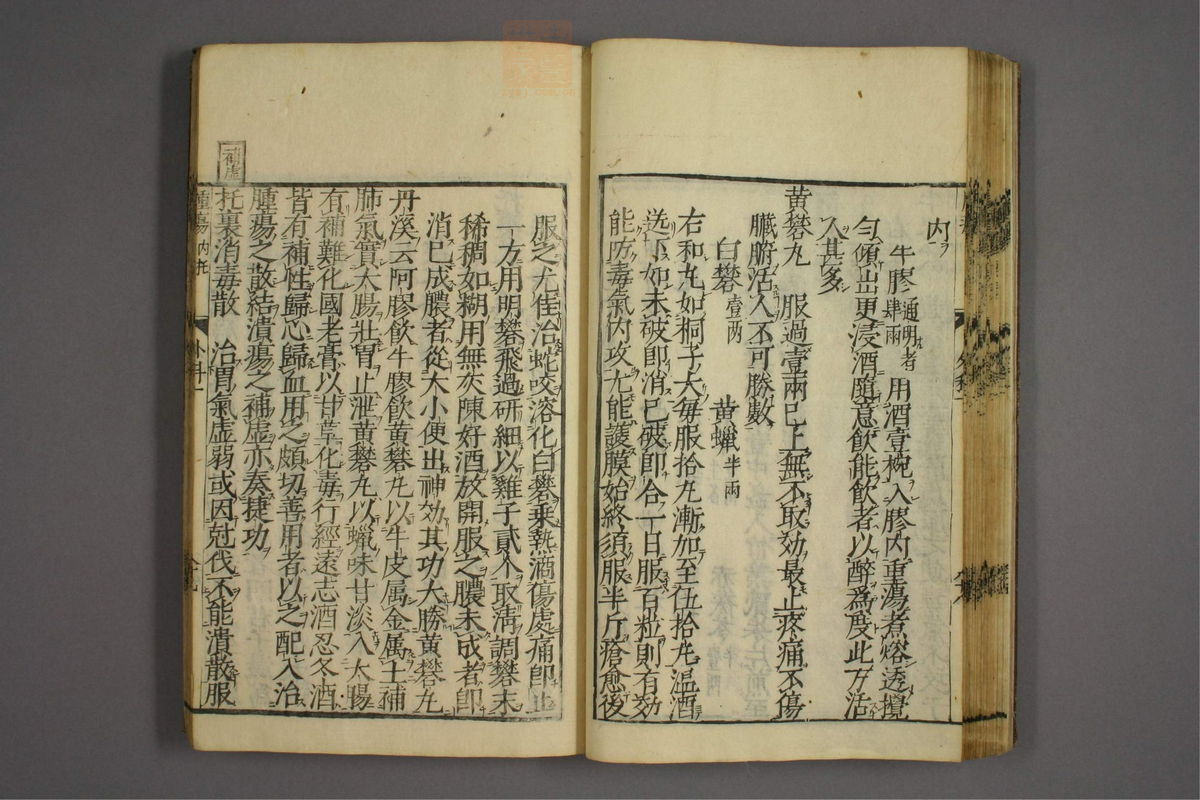 内
牛膠 通明者肆兩 用酒壹椀入膠内重湯煮熔透攪
匀傾出更浸酒隨意飲能飲者以醉爲度此方活
人甚多
黄礬丸 服過壹兩已上無不取効最止疼痛不傷
臟腑活人不可勝數
白礬 壹兩 黄蠟 半兩
右和丸如桐子大毎服拾丸漸加至伍拾丸温酒
送下如未破即消已破即合一日服百粒則有効
能防毒氣内攻尤能護膜始終須服半斤瘡愈後
服之尤佳治蛇咬溶化白礬乗熱滴傷處痛即止
一方用明礬飛過研細以雞子貳个取淸調礬末
稀稠如糊用無灰陳好酒放開服之膿未成者即
消已成膿者從大小便出神効其功大勝黄礬丸
丹溪云阿膠飲牛膠飲黄礬丸以牛皮属金属土補
肺氣實大腸壯胃止泄黄礬丸以蠟味甘淡入太陽
有補難化國老膏以甘草化毒行經遠志酒忍冬酒
皆有補性歸心歸血用之頗切善用者以之配入治
腫瘍之散結潰瘍之補虛亦奏捷功
補虛
托裏消毒散 治胃氣虛弱或因尅伐不能潰散服
腫瘍 内托